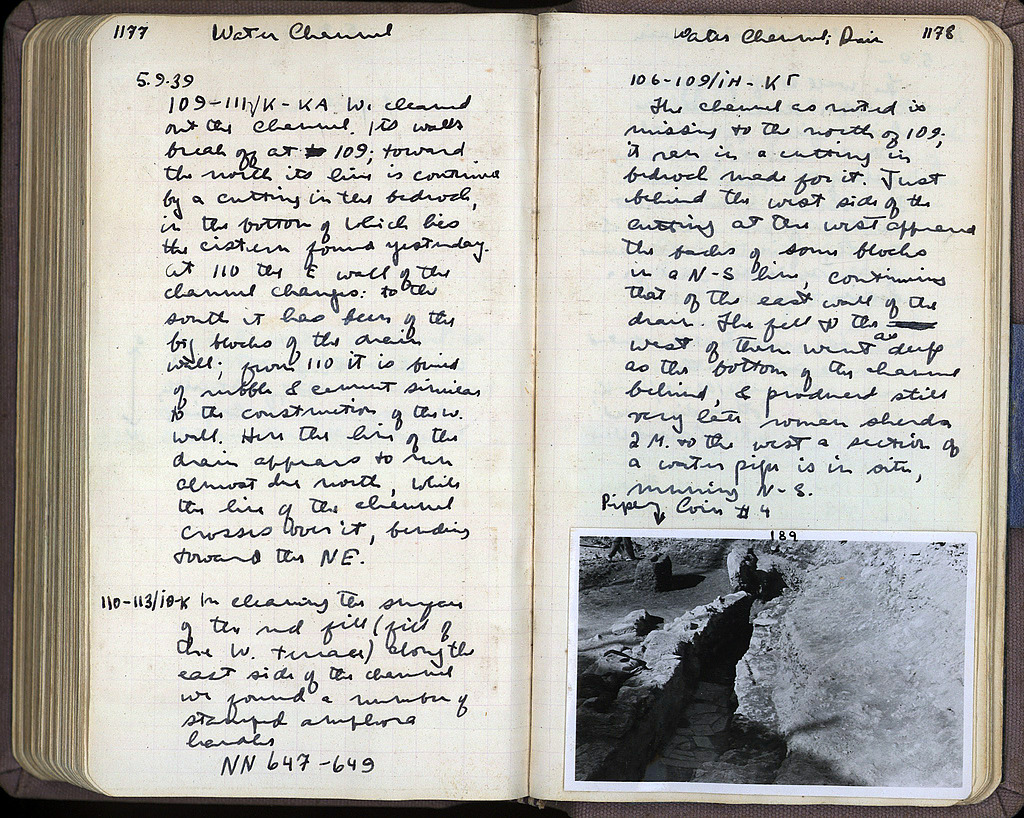 1177 Water Channel
5.9.39
109-111/K-KA We cleaned
out the channel. Its walls
break off at 109; toward
the north its line is continued
by a cutting in the bedrock,
in the bottom of which lies
the cistern found yesterday.
At 110 the E wall of the
channel changes: to the
south it has been of the
big blocks of the drain
wall; from 110 it is built
of rubble & cement similar
to the construction of the W.
wall. Here the line of the
drain appears to run
almost due north, while
the line of the channel
crosses over it, bending
toward the NE.
110-113/ In clearing the surface
of the red fill (fill of
the W. terrace) along the
east side of the channel
we found a number of
stamped amphora
handles
NN 647-649
Water Channel; Drain 1178
106-109/
The channel as noted is
missing to the north of 109;
it ran in a cutting in
bedrock made for it. Just
behind the west side of the
cutting at the west appeared
the backs of some blocks
in a N-S line, continuing
that of the east wall of the
drain. The fill to the
west of them went as deep
as the bottom of the channel
behind, & produced still
very late roman sherds
2 M. to the west a section of
a water pipe is in situ,
running N-S.
Coin #4
189